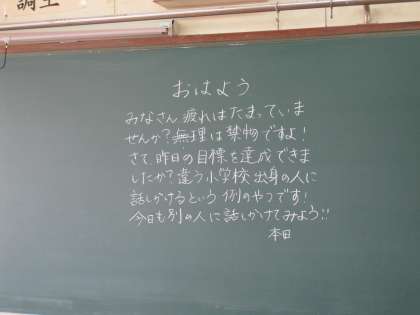 おはよう
みなさん疲れはたまっていま
せんか?無理は禁物ですよ!
さて昨日の目標を達成できま
したか?違う小学校出身の人に
話しかけるという例のやつです!
今日も別の人に話しかけてみよう!!
本田